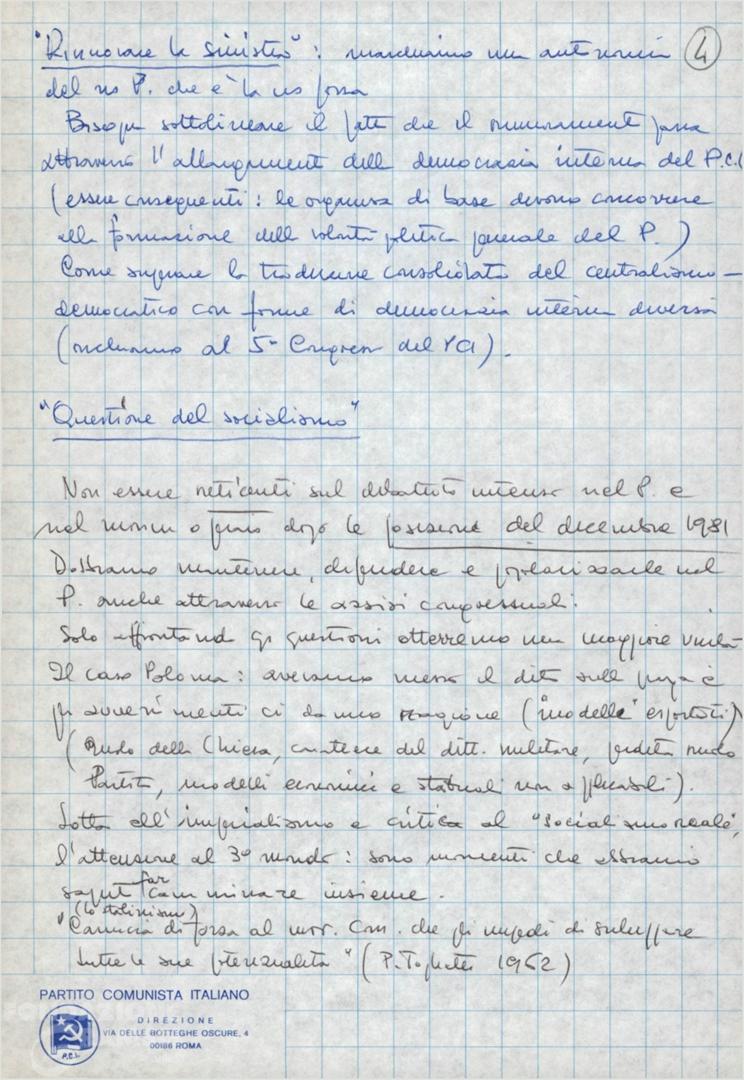 "Rinnovare la sinistra": marchiamo una autonomia 4
del ns P. che è la ns forza
Bisogna sottolineare il fatto che il rinnovamento passa
attraverso l'allargamento della democrazia interna del P.C.I
(essere conseguenti: le organizz di base devono concorrere
alla formazione della volontà politica generale del P.)
Come superare la tradizione consolidata del centralismo-
democratico con forme di democrazia interna diversa
(richiamo al 5° Congresso del PCI).
"Questione del socialismo"
Non essere reticenti sul dibattito intenso nel P. e
nel mondo operaio dopo la posizione del dicembre 1981
Dobbiamo mantenere, difendere e popolarizzarle nel
P. anche attraverso le assisi congressuali.
Solo affrontando qs questioni otterremo una maggiore unità
Il caso Polonia: avevamo messo il dito sulla piaga e
gli avvenimenti ci danno ragione ("modello" esportato)
(Ruolo della Chiesa, carattere del ditt. militare, perdita ruolo
Partito, modelli economici e statuali non applicabili).
Lotta all'imperialismo e critica al "socialismo reale",
l'attenzione al 3° mondo: sono momenti che abbiamo
saputo far camminare insieme.
(lo stalinismo)
"Camicia di forza al mov. Com. che gli impedì di sviluppare
tutte le sue potenzialità" (P. Togliatti 1962)
PARTITO COMUNISTA ITALIANO
DIREZIONE
VIA DELLE BOTTEGHE OSCURE, 4
00186 ROMA
P.C.I.